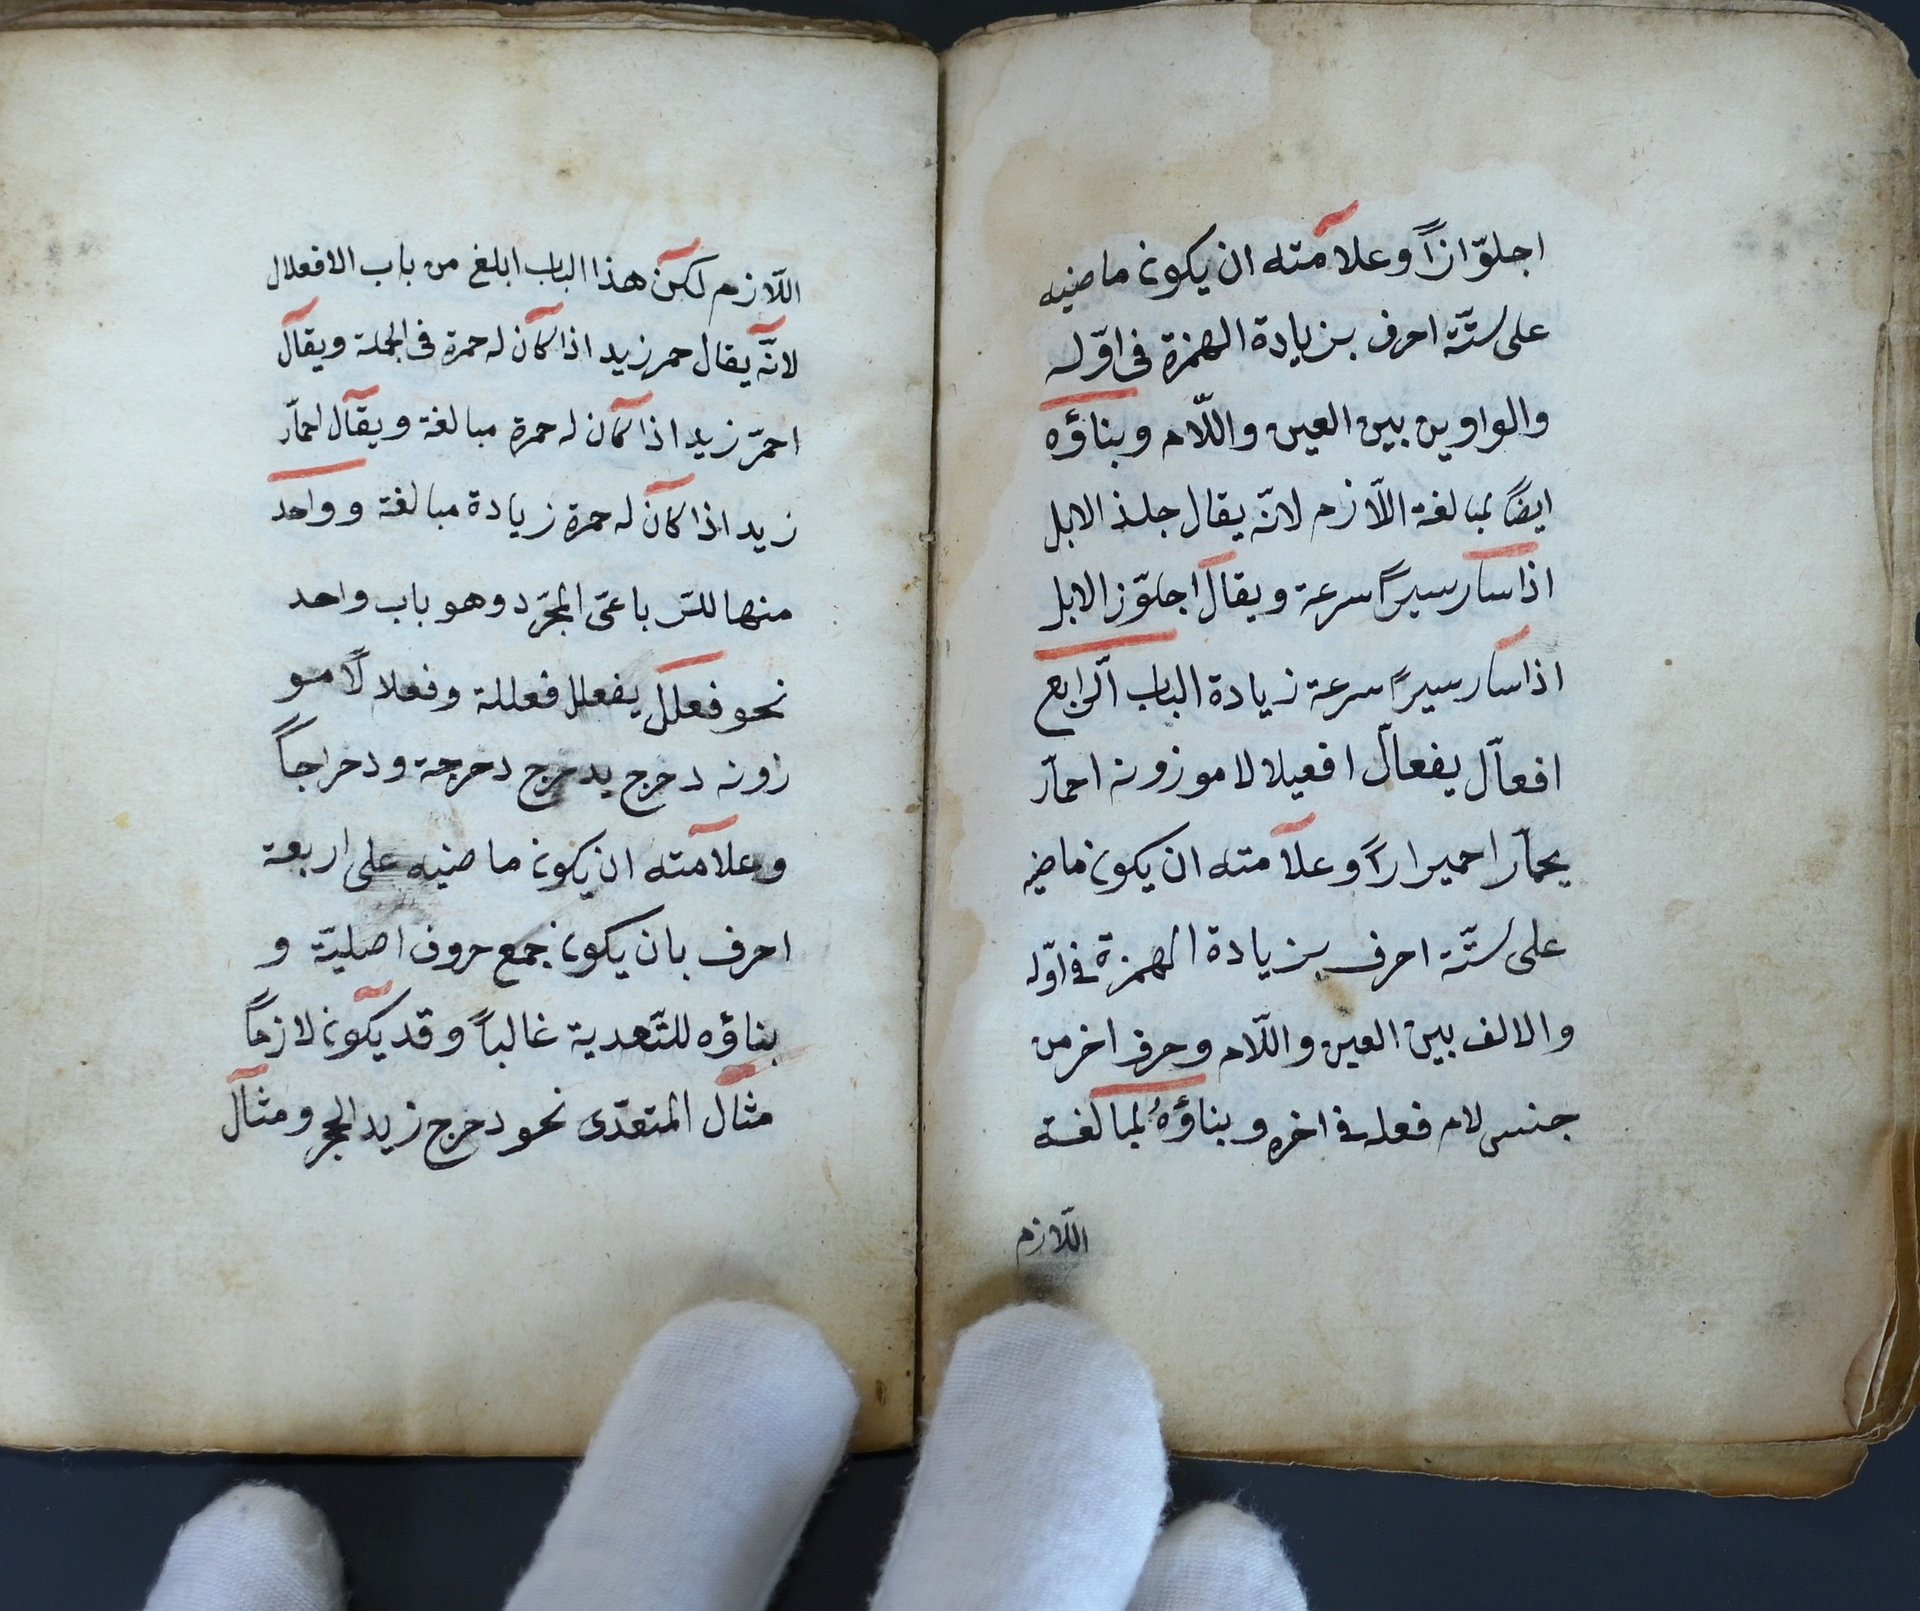 اجلوّازاً وعلامته ان يكون ماضيه
على ستّة احرف بزيادة الهمزة فى اوّله
والواوين بين العين واللّام وبناؤه
ايضاً لمبالغة اللّازم لانّه يقال جلذ الابل
اذا سار سيراً سرعة ويقال اجلوّز الابل
اذا سار سيراً سرعة زيادة الباب الرّابع
افعالّ يفعالّ افعيلالا موزونه احمارّ
يحمارّ احميراراً وعلامته ان يكون ماضيه
على ستّة احرف بزيادة الهمزة فى اوّله
والالف بين العين واللّام وحرف اخر من
جنس لام فعله فى اخره وبناؤهُ لمبالغة
اللّازم
اللّازم لكن هذا الباب ابلغ من باب الافعلال
لانّه يقال حمر زيد اذا كان له حمرة فى الجملة ويقال
احمرّ زيد اذا كان له حمرة مبالغة ويقال احمارّ
زيد اذا كان له حمرة زيادة مبالغة وواحد
منها للرّباعىّ المجرّد وهو باب واحد
نحو فعلل يفعلل فعللة وفعلالاً مو
زونه دحرج يدحرج دحرجة ودحراجاً
وعلامته ان يكون ماضيه على اربعة
احرف بان يكون جمع حروف اصليّة و
بناؤه للتّعدية غالباً وقد يكون لازماً
مثال المتعدّى نحو دحرج زيد الحجر ومثال